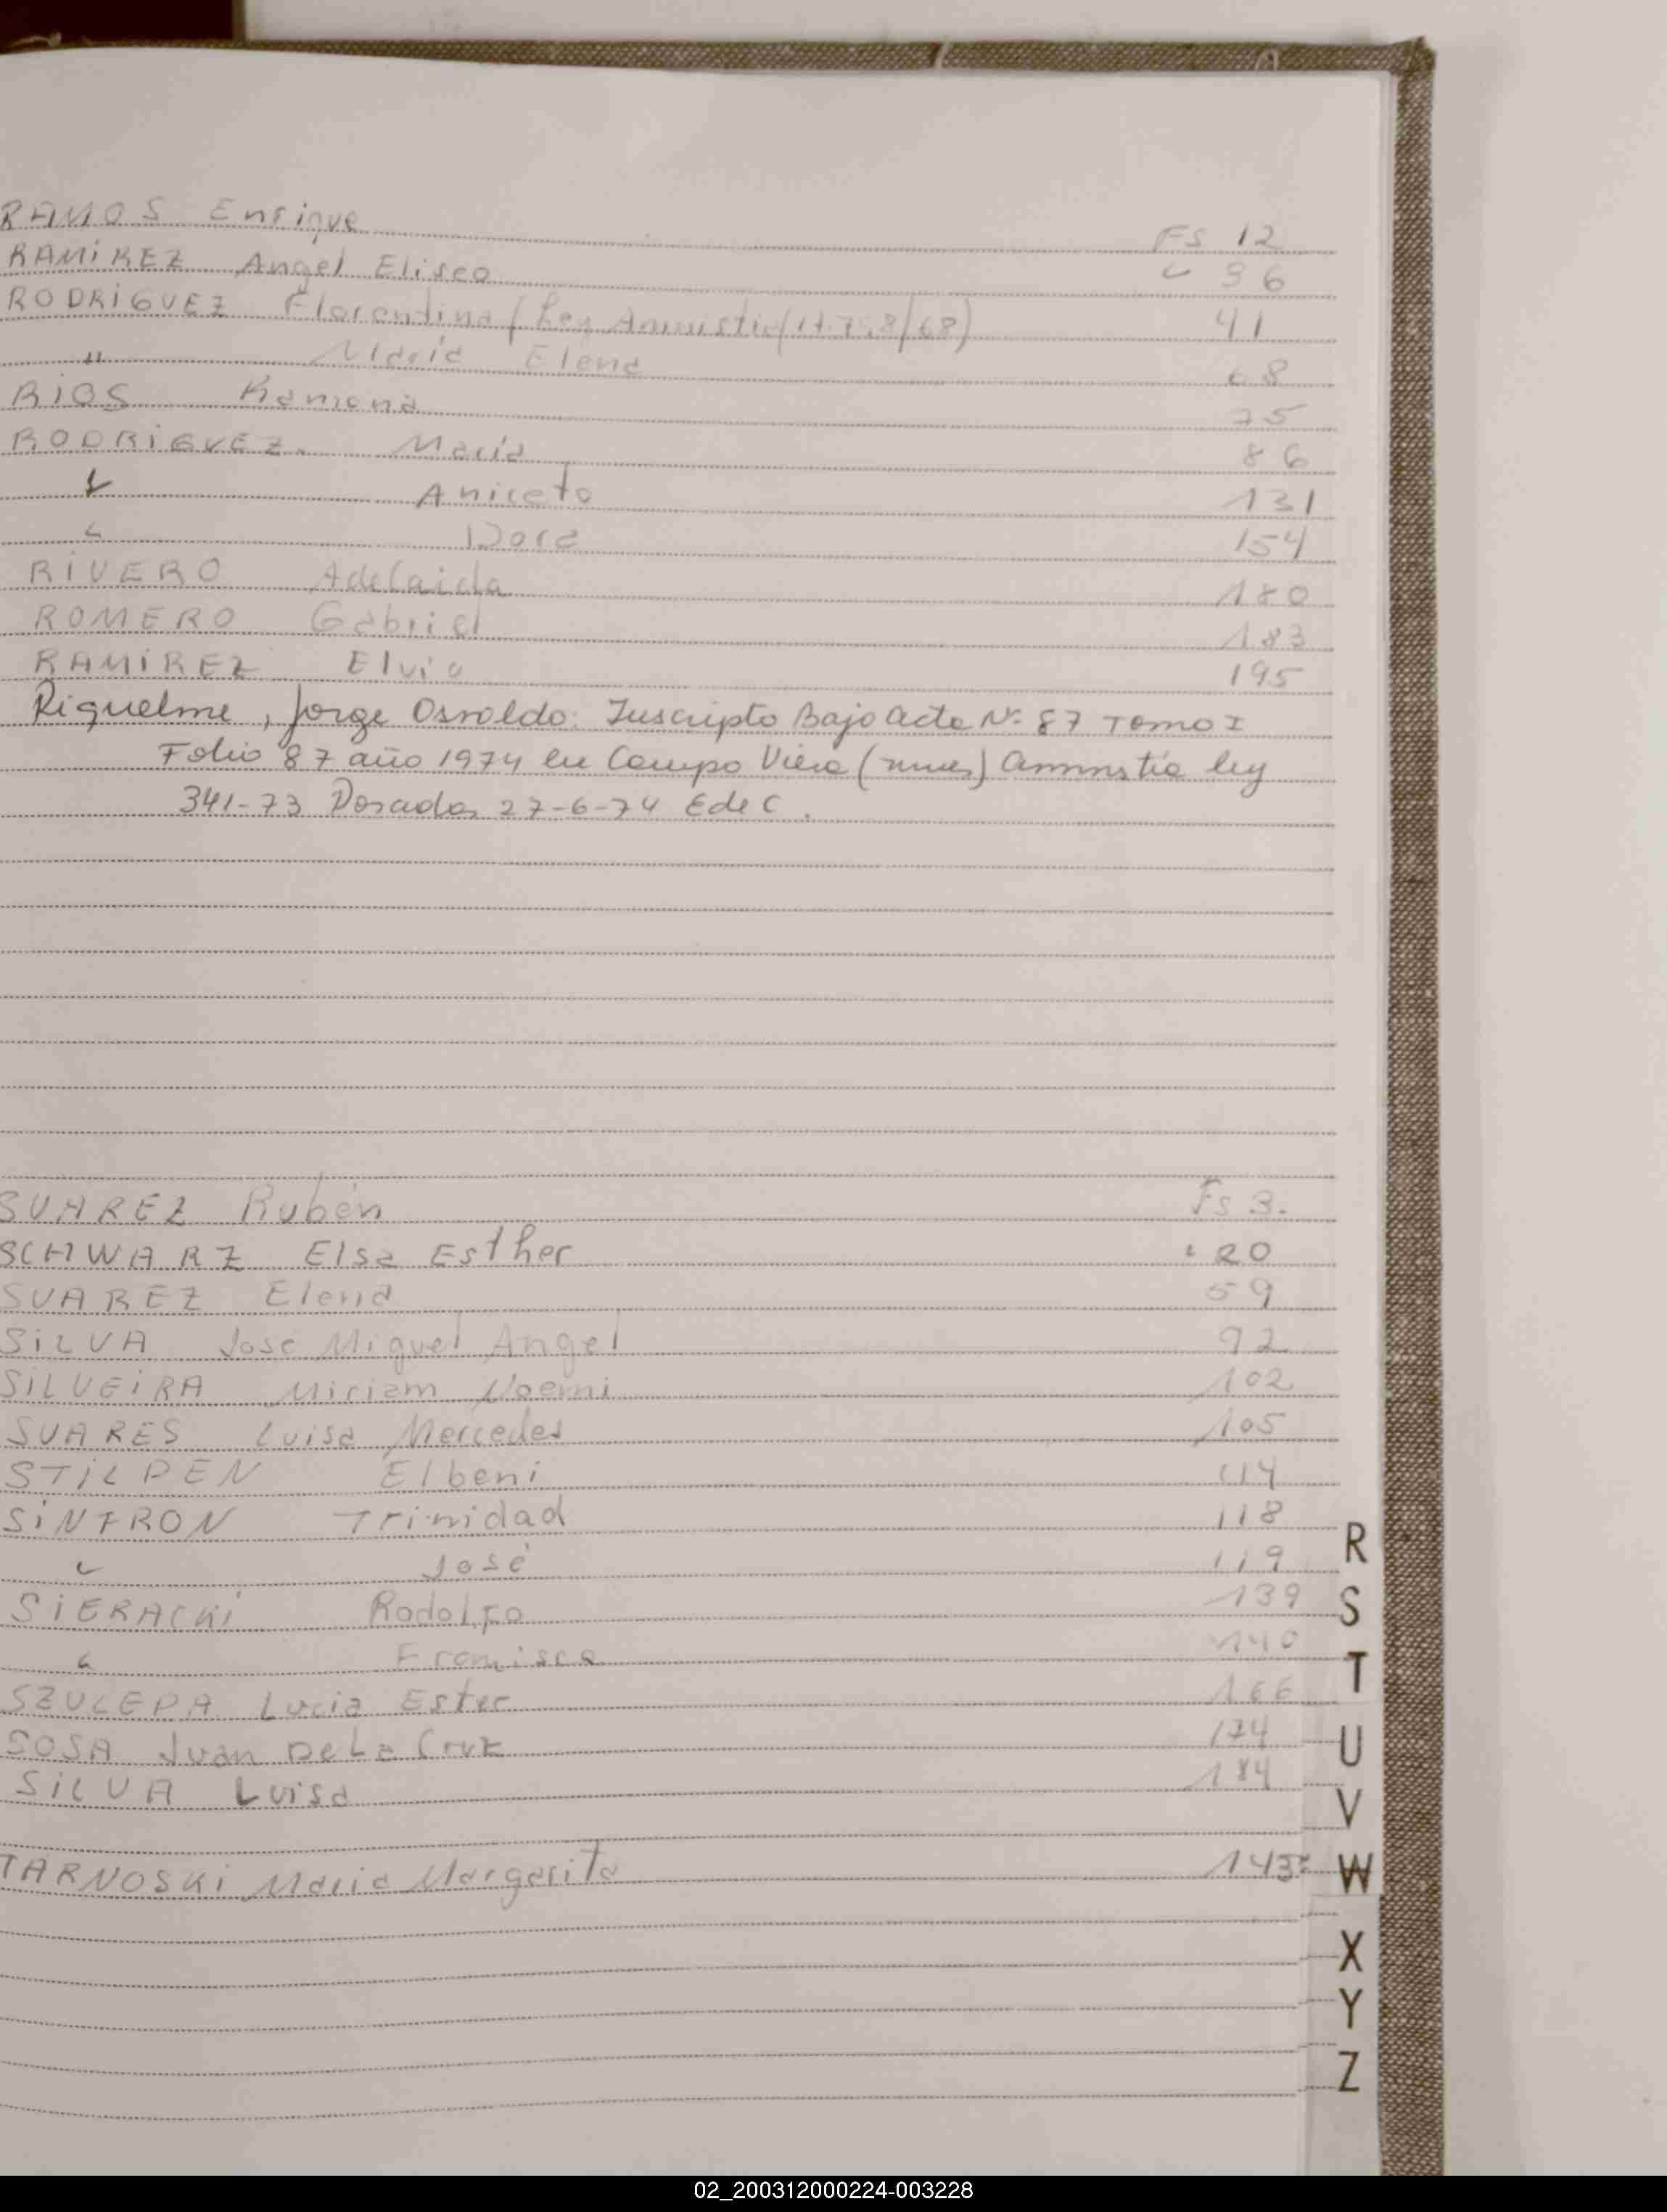 RAMOS Enrique Fs 12
RAMiREZ Angel Eliseo " 36
RODRiGUEZ Florentina (Ley Amnistia 41
" Maria Elena 68
RiOS Ramona 75
RODRiGUEZ. Maria 86
" Aniceto 131
" Dora 154
RiVERO Adelaida 180
ROMERO Gabriel 183
RAMiREZ Elvio 195
Riquelme, Jorge Osvaldo. Inscripto Bajo acta Nº 87 Tomo I
Folio 87 año 1974 en Campo Viera (mnes) amnistia ley
341-73 Posadas 27-6-74 EdeC.
SUAREZ Rubén Fs 3.
SCHWARZ Elsa Esther " 20
SUAREZ Elena 59
SiLVA José Miguel Angel 92
SiLVEiRA Miriam Noemi 102
SUARES Luisa Mercedes 105
STiLPEN Elbeni 114
SiNTRON Trinidad 118
" José 119
SiERACKi Rodolfo 139
" Francisca 140
SZULEPA Lucia Ester 166
SOSA Juan De La Cruz 174
SiLVA Luisa 184
TARNOSKi Maria Margarita 143
R
S
T
U
V
W
X
Y
Z
02_200312000224-003228